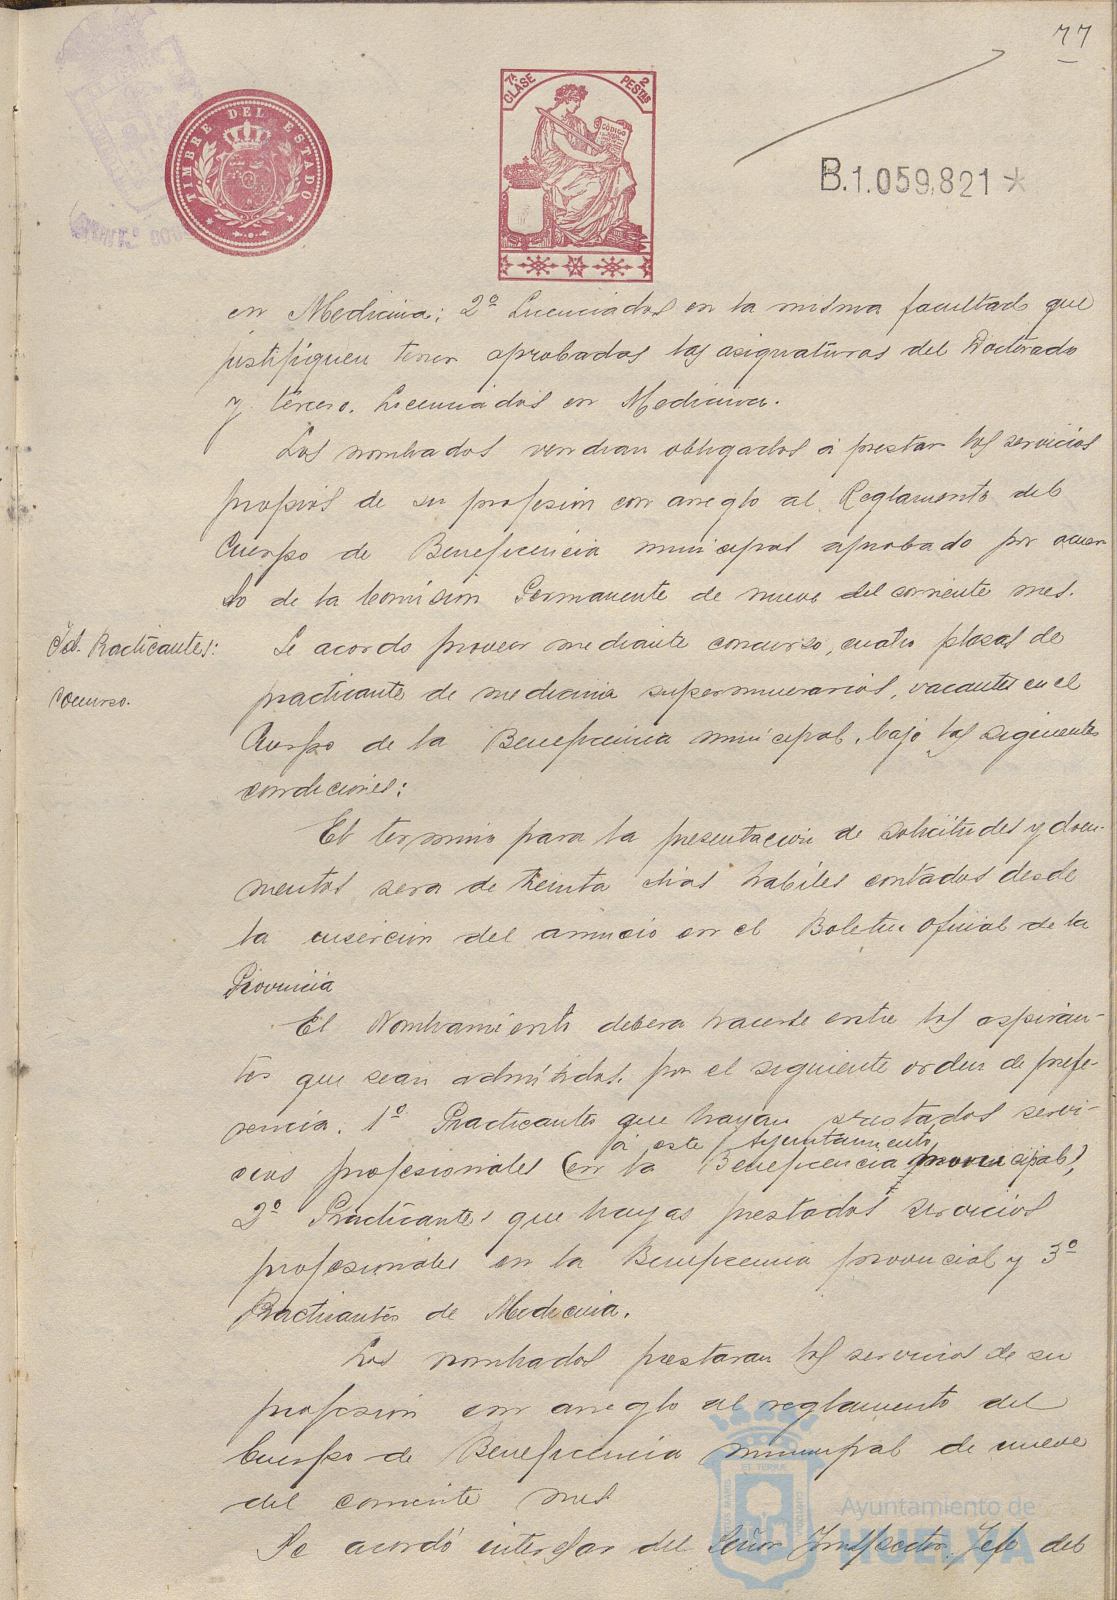 77
TIMBRE DEL ESTADO
7ª CLASE
2 PESTAS
CÓDIGO
B.1.059.821 *
en Medicina; 2º Licenciados en la misma facultad que
justifiquen tener aprobadas las asignaturas del Doctorado
y tercero. Licenciados en Medicina.
Los nombrados vendran obligados á prestar los servicios
propios de su profesion con arreglo al Reglamento del
Cuerpo de Beneficencia municipal aprobado por acuer-
do de la Comision Permanente de nueve del corriente mes.
Id. Practicantes:
cocurso.
Se acordo proveer mediante concurso, cuatro plazas de
practicante de medicina supernumerarios, vacantes en el
Cuerpo de la Beneficencia municipal, bajo las siguientes
condiciones:
El termino para la presentación de solicitudes y docu-
mentos sera de treinta dias habiles contados desde
la insercion del anuncio en el Boletin oficial de la
Provincia
El Nombramiento debera hacerse entre los aspiran-
tes que sean admitidos por el siguiente orden de prefe-
rencia. 1º Practicantes que hayan prestados servi-
á este Ayuntamiento
cios profesionales (en la Beneficencia municipal),
2º Practicantes que hayas prestados servicios
profesionales en la Beneficencia provincial y 3º
Practicantes de Medicina.
Los nombrados prestaran los servicios de su
profesion con arreglo al reglamento del
Cuerpo de Beneficencia municipal de nueve
del corriente mes
Se acordó interesar del Señor Inspector Jefe del
Ayuntamiento de
HUELVA